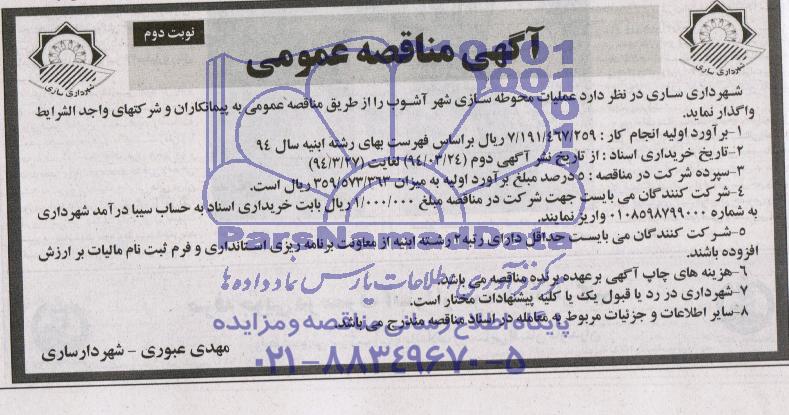 نوبت دوم
آگهی مناقصه عمومی
شهرداری ساری
شهرداری ساری
شهرداری ساری در نظر دارد عملیات محوطه سازی شهر آشوب را از طریق مناقصه عمومی به پیمانکاران و شرکتهای واجد الشرایط
واگذار نماید.
۱-برآورد اولیه انجام کار : ۷/۱۹۱/۴۶۷/۲۵۹ ریال براساس فهرست بهای رشته ابنیه سال ۹۴
۲-تاریخ خریداری اسناد : از تاریخ نشر آگهی دوم (۹۴/۰۳/۲۴) لغایت (۹۴/۳/۲۷)
۳-سپرده شرکت در مناقصه : ۵ درصد مبلغ برآورد اولیه به میزان ۳۵۹/۵۷۳/۳۶۳ ریال است.
۴-شرکت کنندگان می بایست جهت شرکت در مناقصه مبلغ ۱/۰۰۰/۰۰۰ ریال بابت خریداری اسناد به حساب سیبا درآمد شهرداری
به شماره ۰۱۰۸۵۹۸۷۹۹۰۰۰ واریز نمایند.
۵-شرکت کنندگان می بایست حداقل دارای رتبه ۲ رشته ابنیه از معاونت برنامه ریزی استانداری و فرم ثبت نام مالیات بر ارزش
افزوده باشند.
۶-هزینه های چاپ آگهی برعهده برنده مناقصه می باشد.
۷-شهرداری در رد یا قبول یک یا کلیه پیشنهادات مختار است.
۸-سایر اطلاعات و جزئیات مربوط به معامله در اسناد مناقصه مندرج می باشد.
مهدی عبوری - شهردار ساری
ParsNamadData
مرکز فرآوری اطلاعات پارس نماد داده ها
پایگاه اطلاع رسانی مناقصه و مزایده
۰۲۱-۸۸۳۴۹۶۷۰-۵